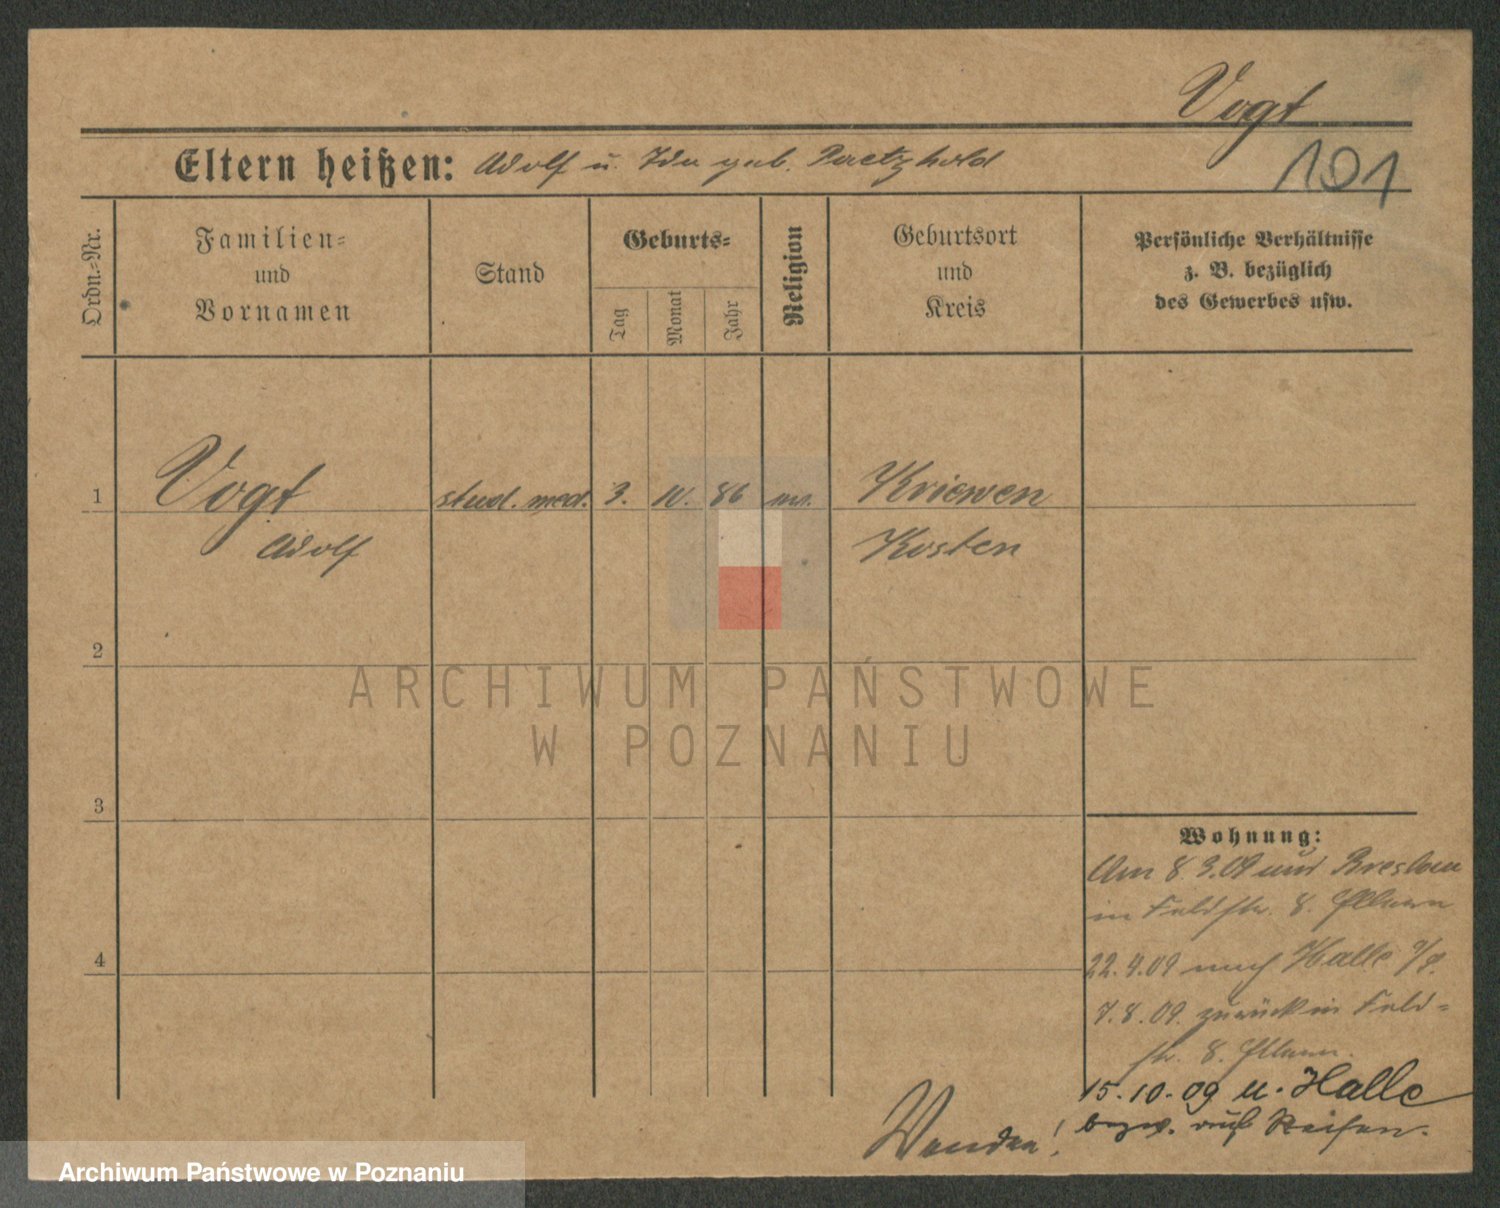 Vogt
101
Eltern heißen: Adolf u. Ida geb. Paetzhold
Ordn.-Nr.
Familien-
und
Vornamen
Stand
Geburts-
Tag
Monat
Jahr
Religion
Geburtsort
und
Kreis
Persönliche Verhältnisse
z. B. bezüglich
des Gewerbes usw.
1
Vogt
Adolf
stud. med.
3.
IV.
86
ev.
Kriewen
Kosten
2
3
4
Wohnung:
Am 8.3.09 aus Breslau
in Feldstr. 8. Eltern
22.4.09 nach Halle a/S.
7.8.09. zurück in Feld-
str. 8. Eltern.
15.10.09 n. Halle
bezw. auf Reisen.
Wenden!
ARCHIWUM PAŃSTWOWE
W POZNANIU
Archiwum Państwowe w Poznaniu